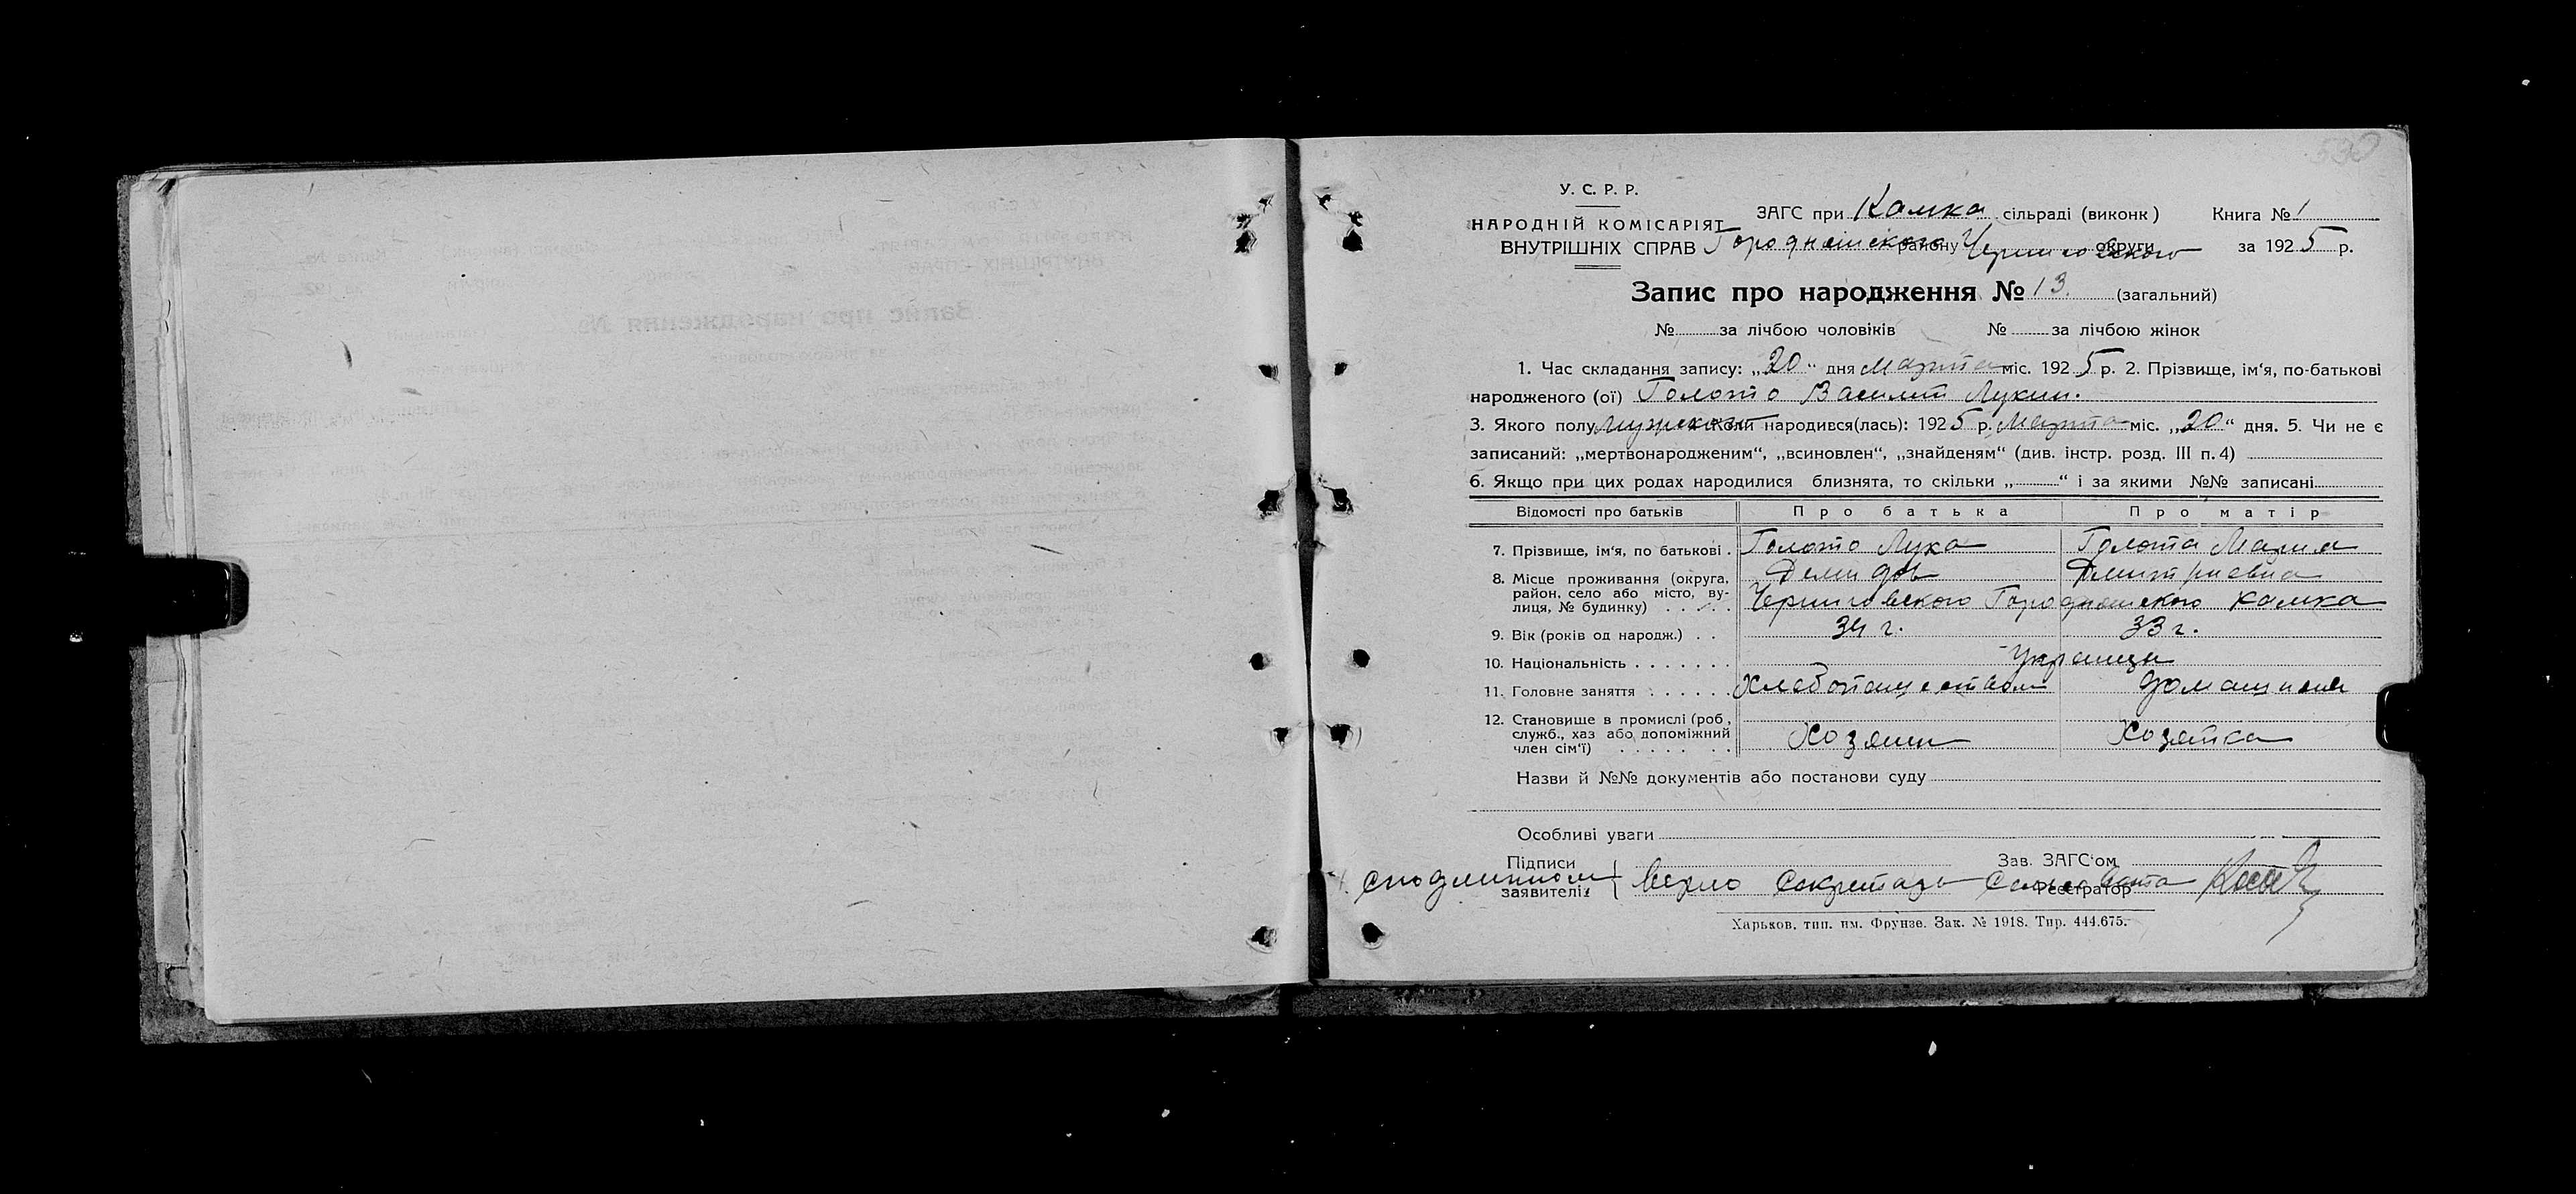 530
У. С. Р. Р.
НАРОДНІЙ КОМІСАРІЯТ
ВНУТРІШНІХ СПРАВ
ЗАГС при Камка сільраді (виконк) Книга № 1
Городнянского району Черниговского округи за 1925 р.
Запис про народження № 13. (загальний)
№ за лічбою чоловіків № за лічбою жінок
1. Час складання запису: „20“ дня Марта міс. 1925 р. 2. Прізвище, ім‘я, по-батькові
народженого (ої) Голота Василий Лукин.
3. Якого полу Мужского народився(лась): 1925 р. Марта міс. „20“ дня. 5. Чи не є
записаний: „мертвонародженим“, „всиновлен“, „знайденям“ (див. інстр. розд. III п. 4)
6. Якщо при цих родах народилися близнята, то скільки „ “ і за якими №№ записані
Відомості про батьків Про батька Про матір
7. Прізвище, ім‘я, по батькові . Голота Лука Голота Мария
Демидов Дмитриевна
8. Місце проживання (округа,
район, село або місто, ву-
лиця, № будинку) . . . . Черниговского Городнянского Камка
9. Вік (років од народж.) . . 34 г. 33 г.
10. Національність . . . . . . . Украинцы
11. Головне заняття . . . . . . Хлебопашеством домашняя
12. Становище в промислі (роб.,
служб., хаз або допоміжний
член сім‘ї) . . . . . . . Хозяин Хозяйка
Назви й №№ документів або постанови суду
Особливі уваги
Підписи Зав. ЗАГС‘ом
С подлинном верно Секретарь Сельсовета
заявителів Реєстратор
Харьков, тип. им. Фрунзе. Зак. № 1918. Тир. 444.675.